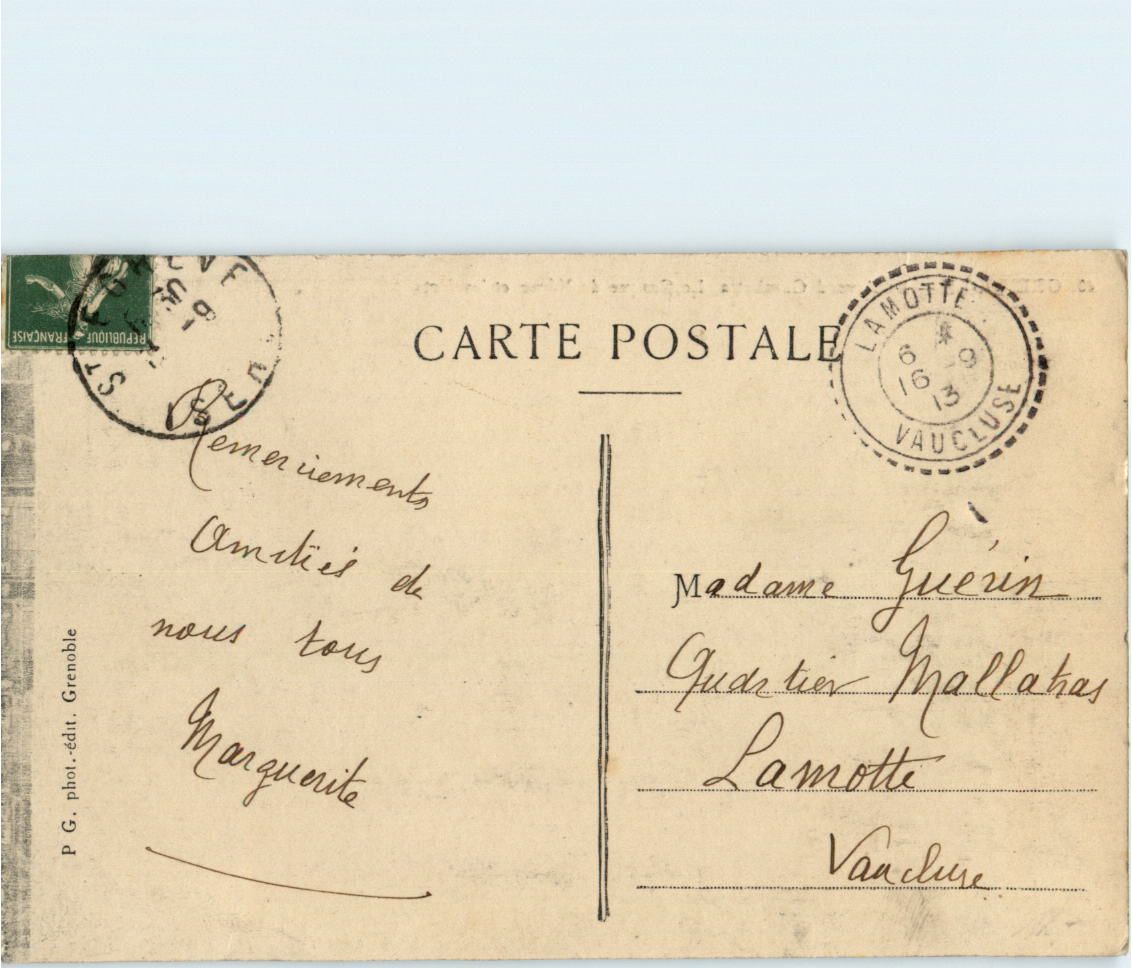 RÉPUBLIQUE FRANÇAISE
ST
CARTE POSTALE
LAMOTTE
6 * 9
16
13
VAUCLUSE
Remerciements
Amitiés de
nous tous
Marguerite
P G. phot.-édit. Grenoble
Madame Guérin
Quartier Mallatras
Lamotte
Vaucluse